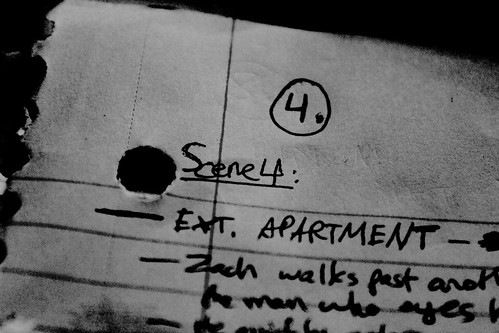 4.
Scene 4:
— EXT. APARTMENT —
— Zach walks past
the man who eyes
the